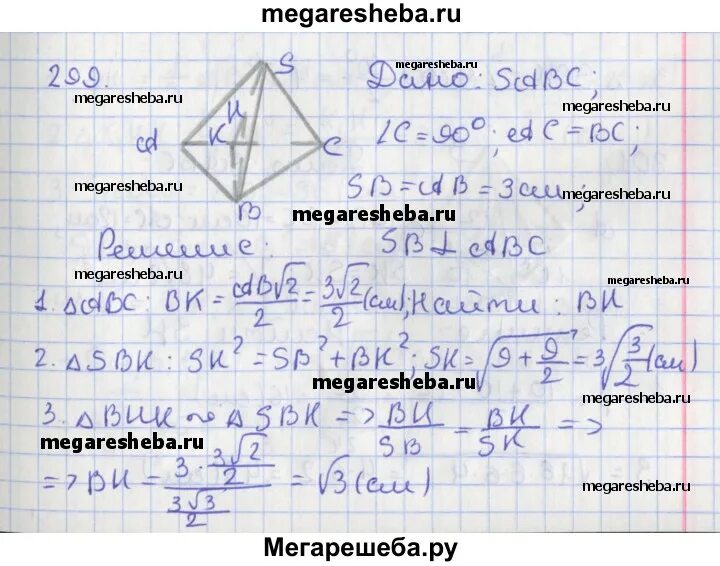 megaresheba.ru
299.
S
H
K
A
C
B
Дано: SABC;
∠C=90°; AC=BC;
SB=AB=3см;
SB⊥ABC
Решение:
Найти: BH
1. △ABC: BK = AB√2/2 = 3√2/2 (см);
2. △SBK: SK² = SB² + BK²; SK = √(9 + 9/2) = 3√(3/2) (см)
3. △BHK ~ △SBK => BH/SB = BK/SK =>
=> BH = (3 · 3√2/2)/(3√3/2) = √3 (см)
megaresheba.ru
megaresheba.ru
megaresheba.ru
megaresheba.ru
megaresheba.ru
megaresheba.ru
megaresheba.ru
megaresheba.ru
megaresheba.ru
megaresheba.ru
Мегарешеба.ру